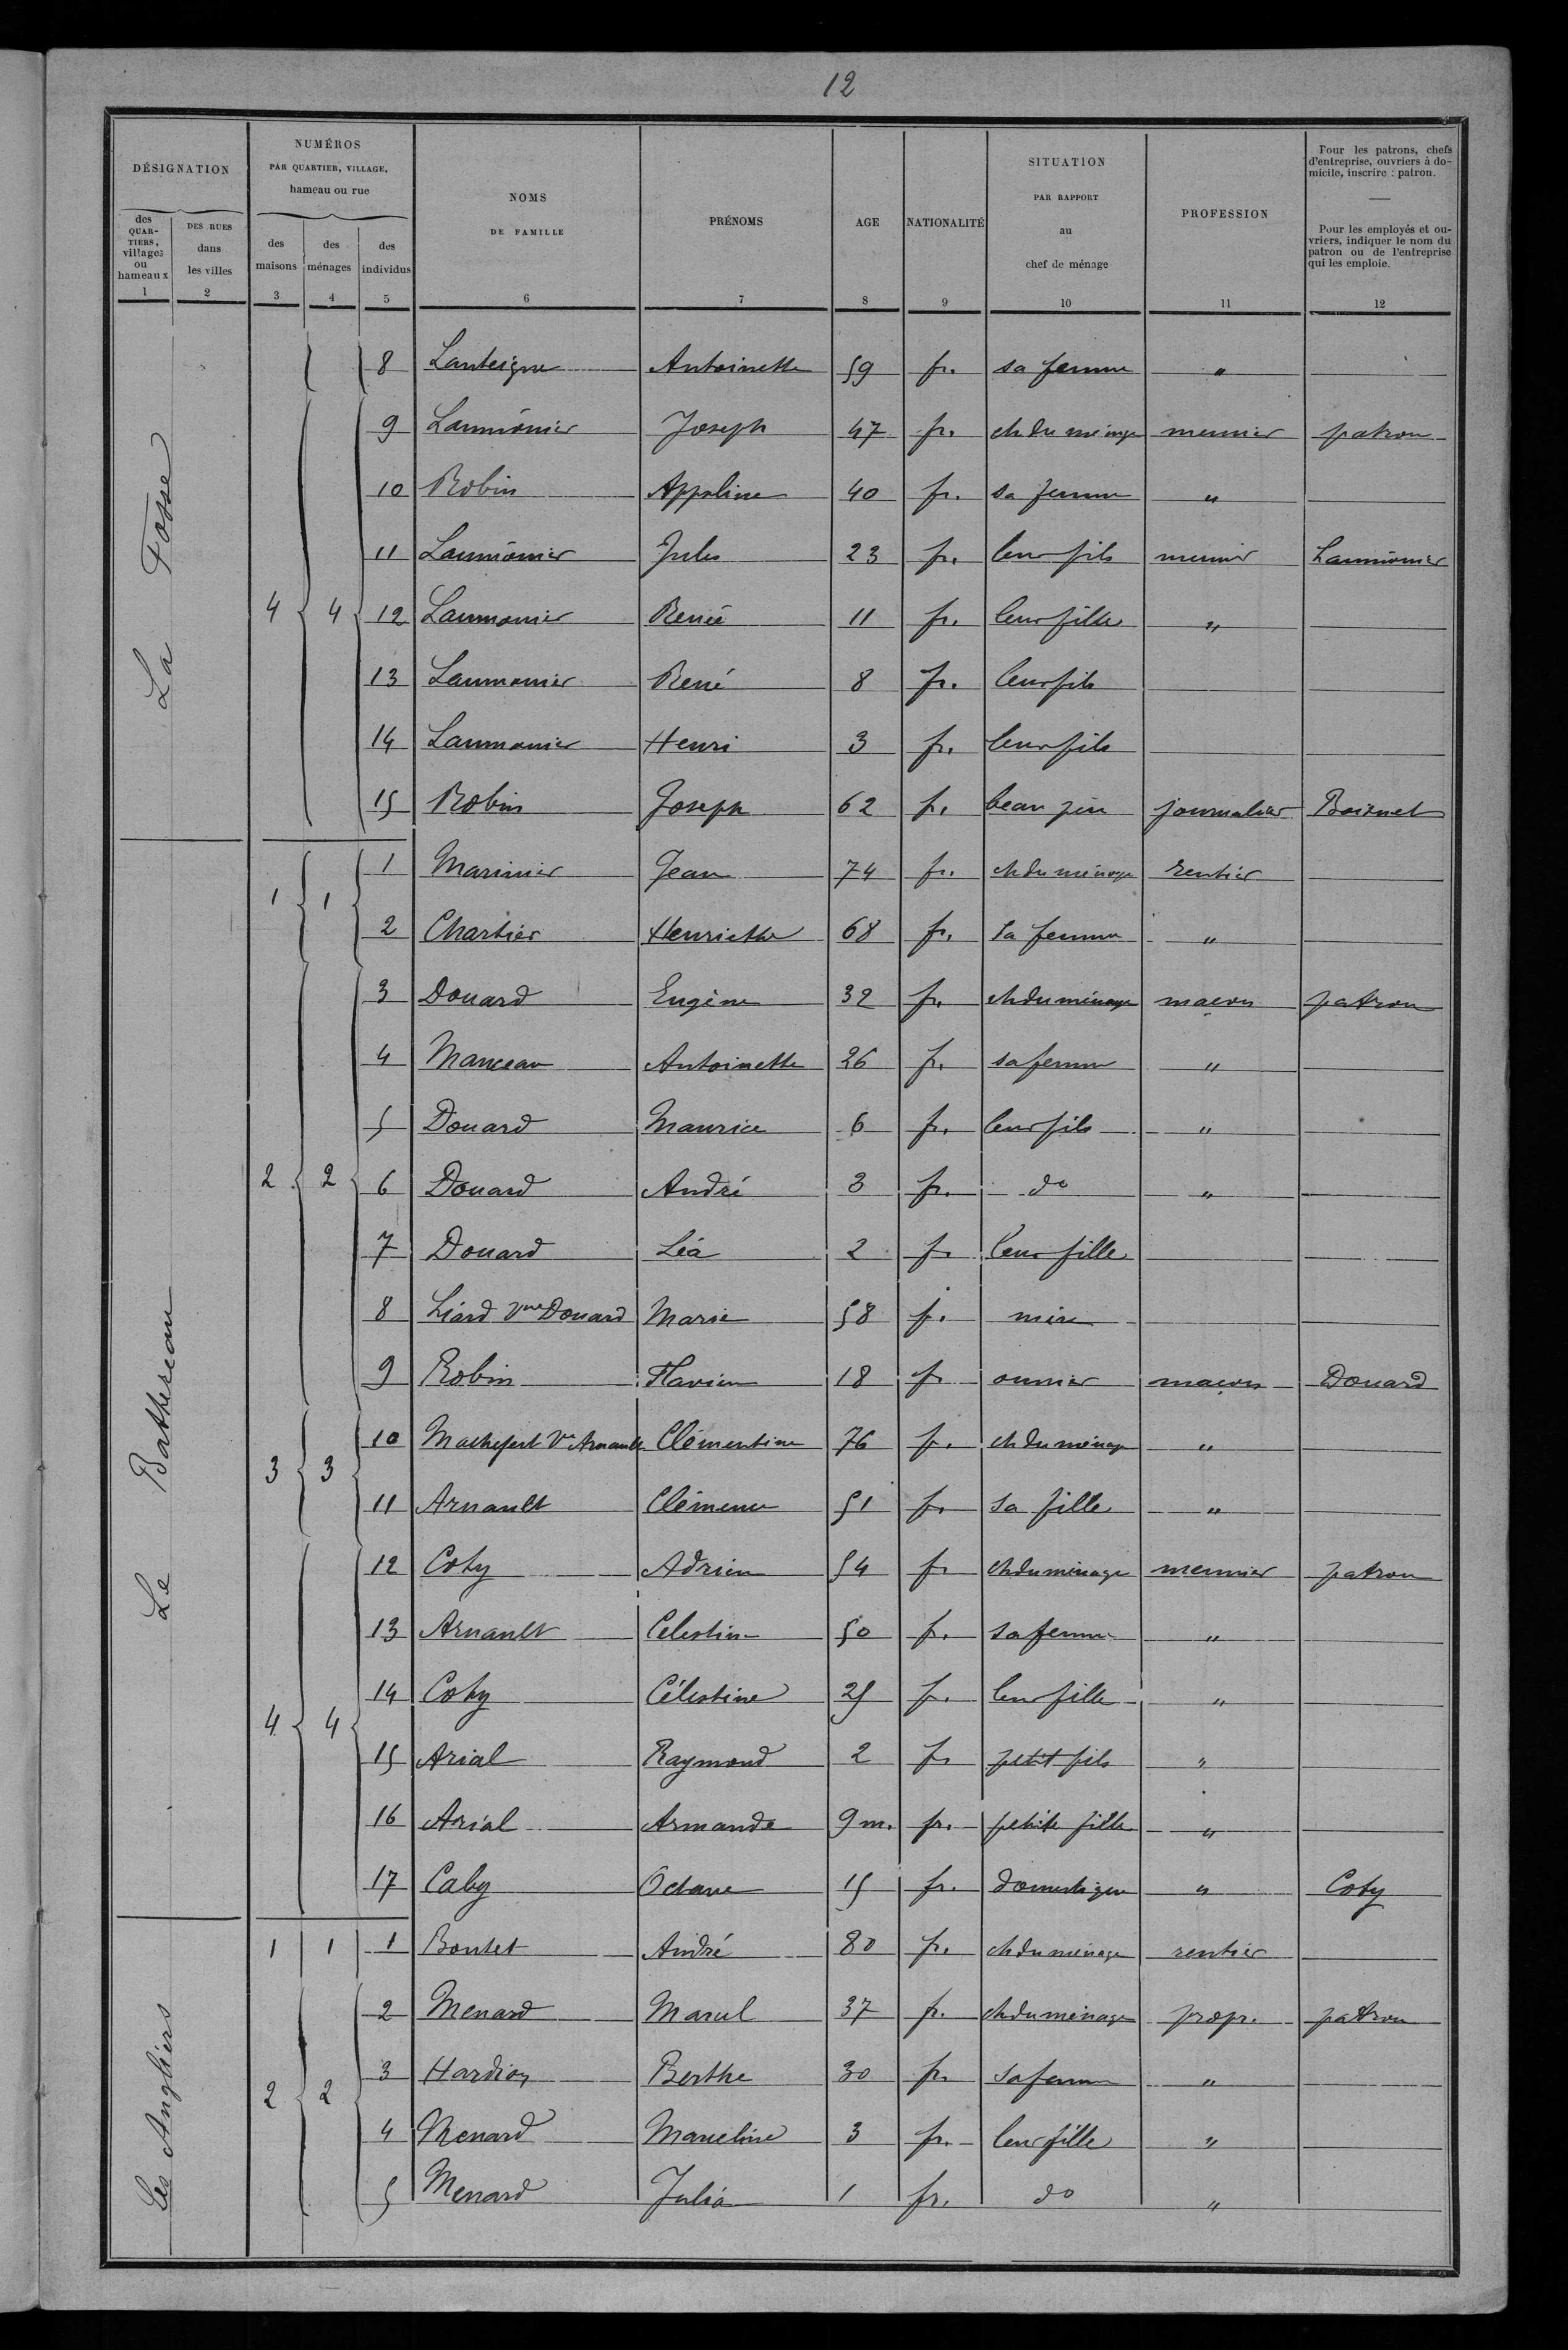 12
DÉSIGNATION
NUMÉROS
PAR QUARTIER, VILLAGE,
hameau ou rue
NOMS
DE FAMILLE
PRÉNOMS
AGE
NATIONALITÉ
SITUATION
PAR RAPPORT
au
chef de ménage
PROFESSION
Pour les patrons, chefs
d'entreprise, ouvriers à do-
micile, inscrire : patron.
Pour les employés et ou-
vriers, indiquer le nom du
patron ou de l'entreprise
qui les emploie.
des
QUAR-
TIERS,
villages
ou
hameaux
DES RUES
dans
les villes
des
maisons
des
ménages
des
individus
1 2 3 4 5 6 7 8 9 10 11 12
La Fosse
8 Lanteigne Antoinette 59 fr. sa femme "
9 Laumônier Joseph 47 fr. ch du ménage meunier patron
10 Robin Appoline 40 fr. sa femme "
11 Laumônier Jules 23 fr. leur fils meunier Laumônier
4 4 12 Laumonier Renée 11 fr. leur fille "
13 Laumonier René 8 fr. leur fils
14 Laumonier Henri 3 fr. leur fils
15 Robin Joseph 62 fr. beau père journalier
Le Bathereau
1 1 1 Marinier Jean 74 fr. ch du ménage rentier
2 Chartier Henriette 68 fr. sa femme "
3 Douard Eugène 32 fr. ch du ménage maçon patron
4 Manceau Antoinette 26 fr. sa femme "
5 Douard Maurice 6 fr. leur fils "
2 2 6 Douard André 3 fr. do "
7 Douard Léa 2 fr leur fille
8 Liard Vve Douard Marie 58 f. mère
9 Robin Flavien 18 fr ouvrier maçon Douard
3 3 10 Machefert Ve Arnault Clémentine 76 fr. ch du ménage "
11 Arnault Clémence 51 fr. sa fille "
12 Coty Adrien 54 fr ch du ménage meunier patron
13 Arnault Celestine 50 fr. sa femme "
4 4 14 Coty Célestine 25 fr. leur fille "
15 Arial Raymond 2 fr petit fils "
16 Arial Armande 9 m. fr. petite fille "
17 Caby Octave 15 fr. domestique " Coty
Les Angliers
1 1 1 Boutet André 80 fr. ch du ménage rentier
2 Menard Marcel 37 fr. ch du ménage propr. patron
2 2 3 Hardion Berthe 30 fr. sa femme "
4 Menard Marceline 3 fr. leur fille "
5 Menard Julia 1 fr. do "